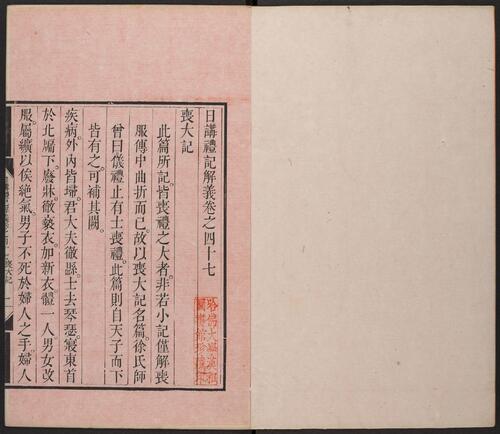 日講禮記解義卷之四十七
喪大記
此篇所記皆喪禮之大者非若小記僅解喪
服傳中曲折而已故以喪大記名篇徐氏師
曾曰儀禮止有士喪禮此篇則自天子而下
皆有之可補其闕
疾病外內皆埽君大夫徹縣士去琴瑟寢東首
於北牖下廢牀徹褻衣加新衣體一人男女改
服屬纊以俟絕氣男子不死於婦人之手婦人